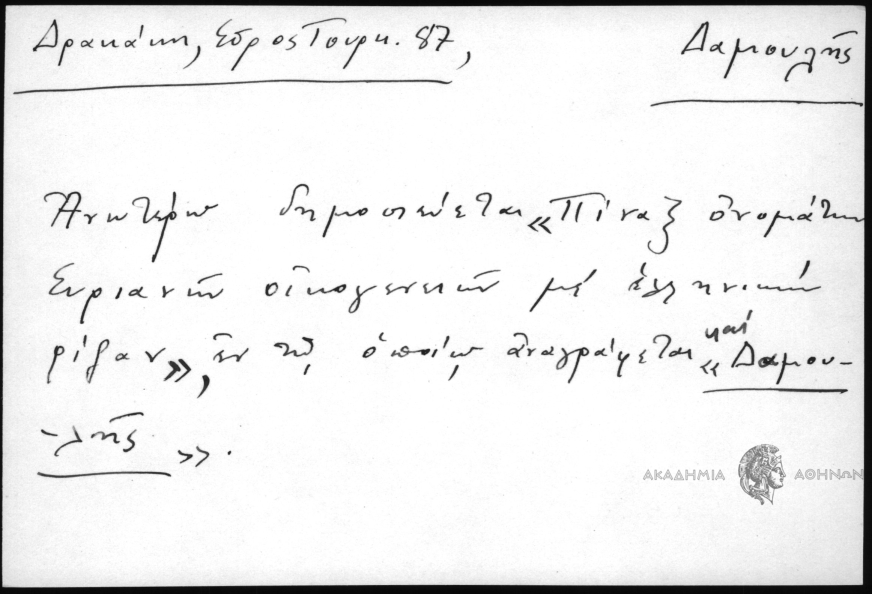 Δρακάκη, Σύρος Τουρκ. 87,
Δαμουλῆς
Ἀνωτέρω δημοσιεύεται «Πίναξ ὀνομάτων
Συριανῶν οἰκογενειῶν μέ ἑλληνικήν
ρίζαν», ἐν τῷ ὁποίῳ ἀναγράφεται καί «Δαμου-
-λῆς».
ΑΚΑΔΗΜΙΑ ΑΘΗΝΩΝ